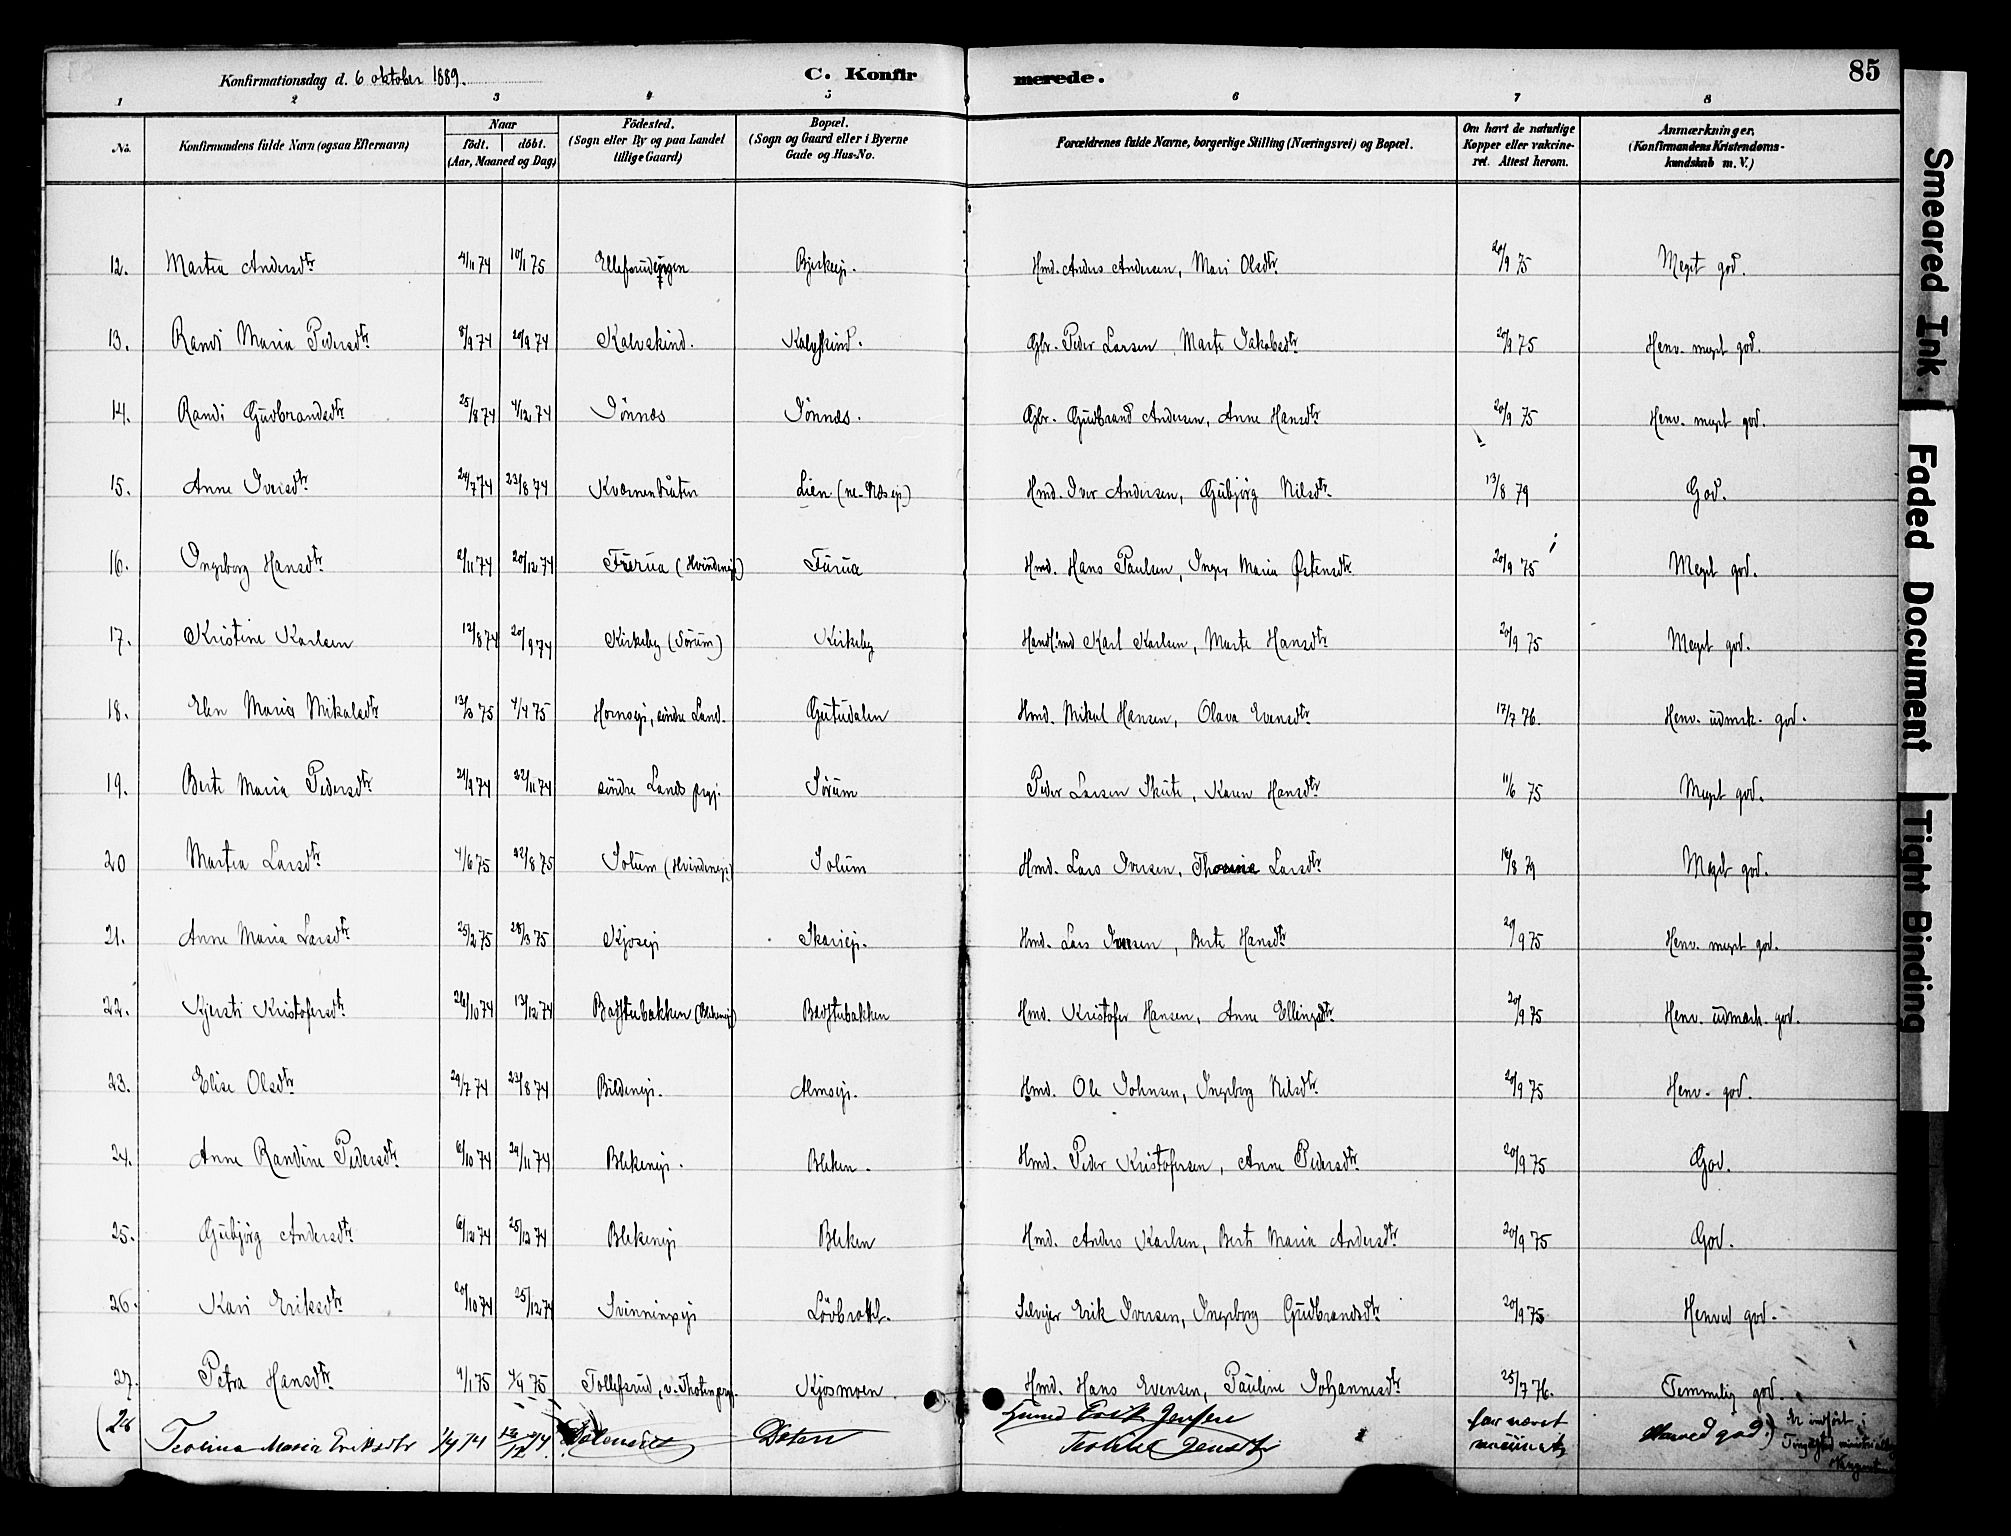 Konfirmationsdag d. 6 oktober 1889. C. Konfirmerede. 85
1 2 3 4 5 6 7 8
No. Konfirmandens fulde Navn (ogsaa Efternavn) Naar födt. döbt. (Aar, Maaned og Dag) Födested. (Sogn eller By og paa Landet tillige Gaard) Bopæl. (Sogn og Gaard eller i Byerne Gade og Hus-No. Forældrenes fulde Navne, borgerlige Stilling (Næringsvei) og Bopæl. Om havt de naturlige Kopper eller vakcineret. Attest herom. Anmærkninger. (Konfirmandens Kristendomskundskab m. V.)
12. Martea Andersdtr 4/11 74 10/1 75 Ellefsrudejgen Bjerkeji. Hmd. Anders Andersen, Mari Olsdtr 20/9 75 Meget god.
13. Randi Maria Pedersdtr 8/9 74 20/9 74 Kalvskind. Kalvskind. Gbr. Peder Larsen, Marte Jakobsdtr 20/9 75 Henv. meget god.
14. Randi Gudbrandsdtr 25/8 74 4/12 74 Jönnes Jönnes. Gbr. Gudbrand Andersen, Anne Hansdtr 20/9 75 Henv. meget god.
15. Anne Iversdtr 24/7 74 23/8 74 Kværnenbråten Lien (ne. Næs ej.) Hmd. Iver Andersen, Gubjörg Nilsdtr 13/8 79 God.
16. Ingeborg Hansdtr 2/11 74 20/12 74 Furua (Hvindeneji) Furua Hmd. Hans Paulsen, Inger Maria Østensdtr 20/9 75 Meget god.
17. Kristine Karlsen 12/8 74 20/9 74 Kirkeby (Sörum) Kirkeby Handl.md Karl Karlsen, Marte Hansdtr 20/9 75 Meget god.
18. Elen Maria Mikalsdtr 13/3 75 4/4 75 Hornseji, söndre Land. Gutudalen Hmd. Mikal Hansen, Olava Evensdtr 17/7 76. Henv. udmrk. god.
19. Berte Maria Pedersdtr 21/9 74 22/11 74 söndre Lands prgj. Sörum Peder Larsen Skute, Karen Hansdtr 11/6 75 Meget god.
20 Martea Larsdtr 4/6 75 22/8 75 Solum (Hvindeneji) Solum Hmd. Lars Iversen, Larsdtr 16/8 79 Meget god.
21. Anne Maria Larsdtr 25/2 75 28/3 75 Kjoseji Skarieji. Hmd. Lars Iversen, Berte Hansdtr 20/9 75 Henv. meget god.
22. Kjersti Kristofersdtr 26/10 74 13/12 74 Badstubakken (Blekeneji) Badstubakken Hmd. Kristofer Hansen, Anne Ellingsdtr 20/9 75 Henv. udmærk. god.
23. Elise Olsdtr 29/7 74 23/8 74 Bildeneji. Almseji. Hmd. Ole Johnsen, Ingeborg Nilsdtr 20/9 75 Henv. god.
24. Anne Randine Pedersdtr 6/10 74 29/11 74 Blekeneji. Bleken. Hmd. Peder Kristofersen, Anne Pedersdtr 20/9 75 God.
25. Gubjörg Andersdtr 6/12 74 25/12 74 Blekeneji Bleken Hmd. Anders Karlsen, Berte Maria Andersdtr 20/9 75 God.
26. Kari Eriksdtr 20/10 74 25/12 74 Svinningseji Lövbrott. Selvejer Erik Iversen, Ingeborg Gudbrandsdtr 20/9 75 Henved god.
27. Petra Hansdtr 9/1 75 4/4 75 Tollefsrud, v. Thoten prgj. Kjosmoen. Hmd. Hans Evensen, Pauline Johannesdtr 25/7 76. Temmelig god.
(28 Teolina Maria Eriksdtr Deten Erik Jensen Jensdtr har været Henved god.) Er indfört i
Smeared Ink
Faded Document
Tight Binding